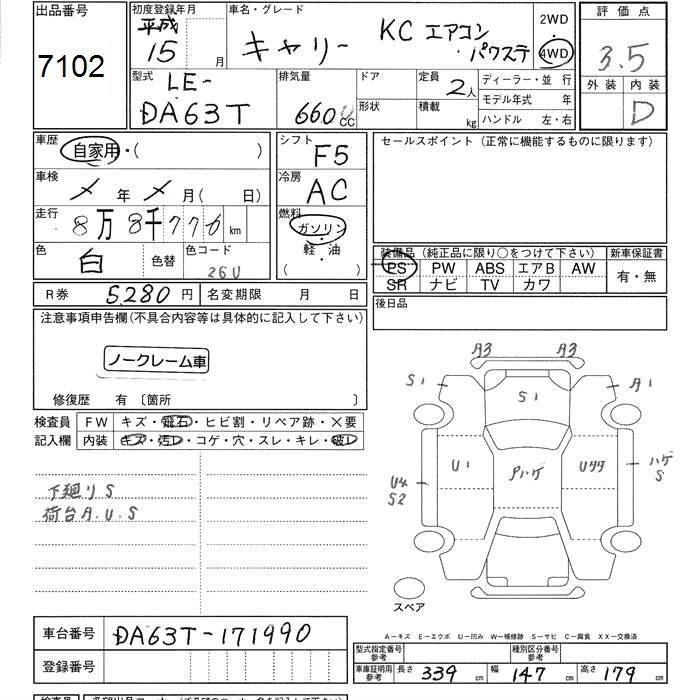 出品番号
7102
初度登録年月
平成
15
車名・グレード
キャリー
KC エアコン
・パワステ
2WD
4WD
評価点
3.5
外装 内装
D
型式
LE-
DA63T
排気量
660 CC
ドア
形状
定員
2人
積載
kg
ディーラー・並 行
モデル年式 年
ハンドル 左・右
車歴
自家用・( )
シフト
F5
セールスポイント (正常に機能するものに限ります)
車検
メ 年 メ 月( 日)
冷房
AC
走行
8万8千776 km
燃料
ガソリン
・
軽・油
( )
色
白
色替
色コード
26U
装備品 (純正品に限り○をつけて下さい)
新車保証書
PS PW ABS エアB AW
SR ナビ TV カワ
有・無
R券 5,280 円 名変期限 月 日
後日品
注意事項申告欄(不具合内容等は具体的に記入して下さい)
ノークレーム車
修復歴 有 〔箇所 〕
検査員 FW キズ・飛石・ヒビ割・リペア跡・×要
記入欄 内装 キズ・汚レ・コゲ・穴・スレ・キレ・破レ
下廻りS
荷台A.U.S
A3 A3
S1
S1
A1
U4
S2
U1
Pハゲ
Uタタ
ハゲ
S
スペア
A-キズ E-エクボ U-凹み W-補修跡 S-サビ C-腐食 XX-交換済
車台番号 DA63T-171990
登録番号
型式指定番号
参考
種別区分番号
参考
車庫証明用
参考
長さ 339 cm 幅 147 cm 高さ 179 cm